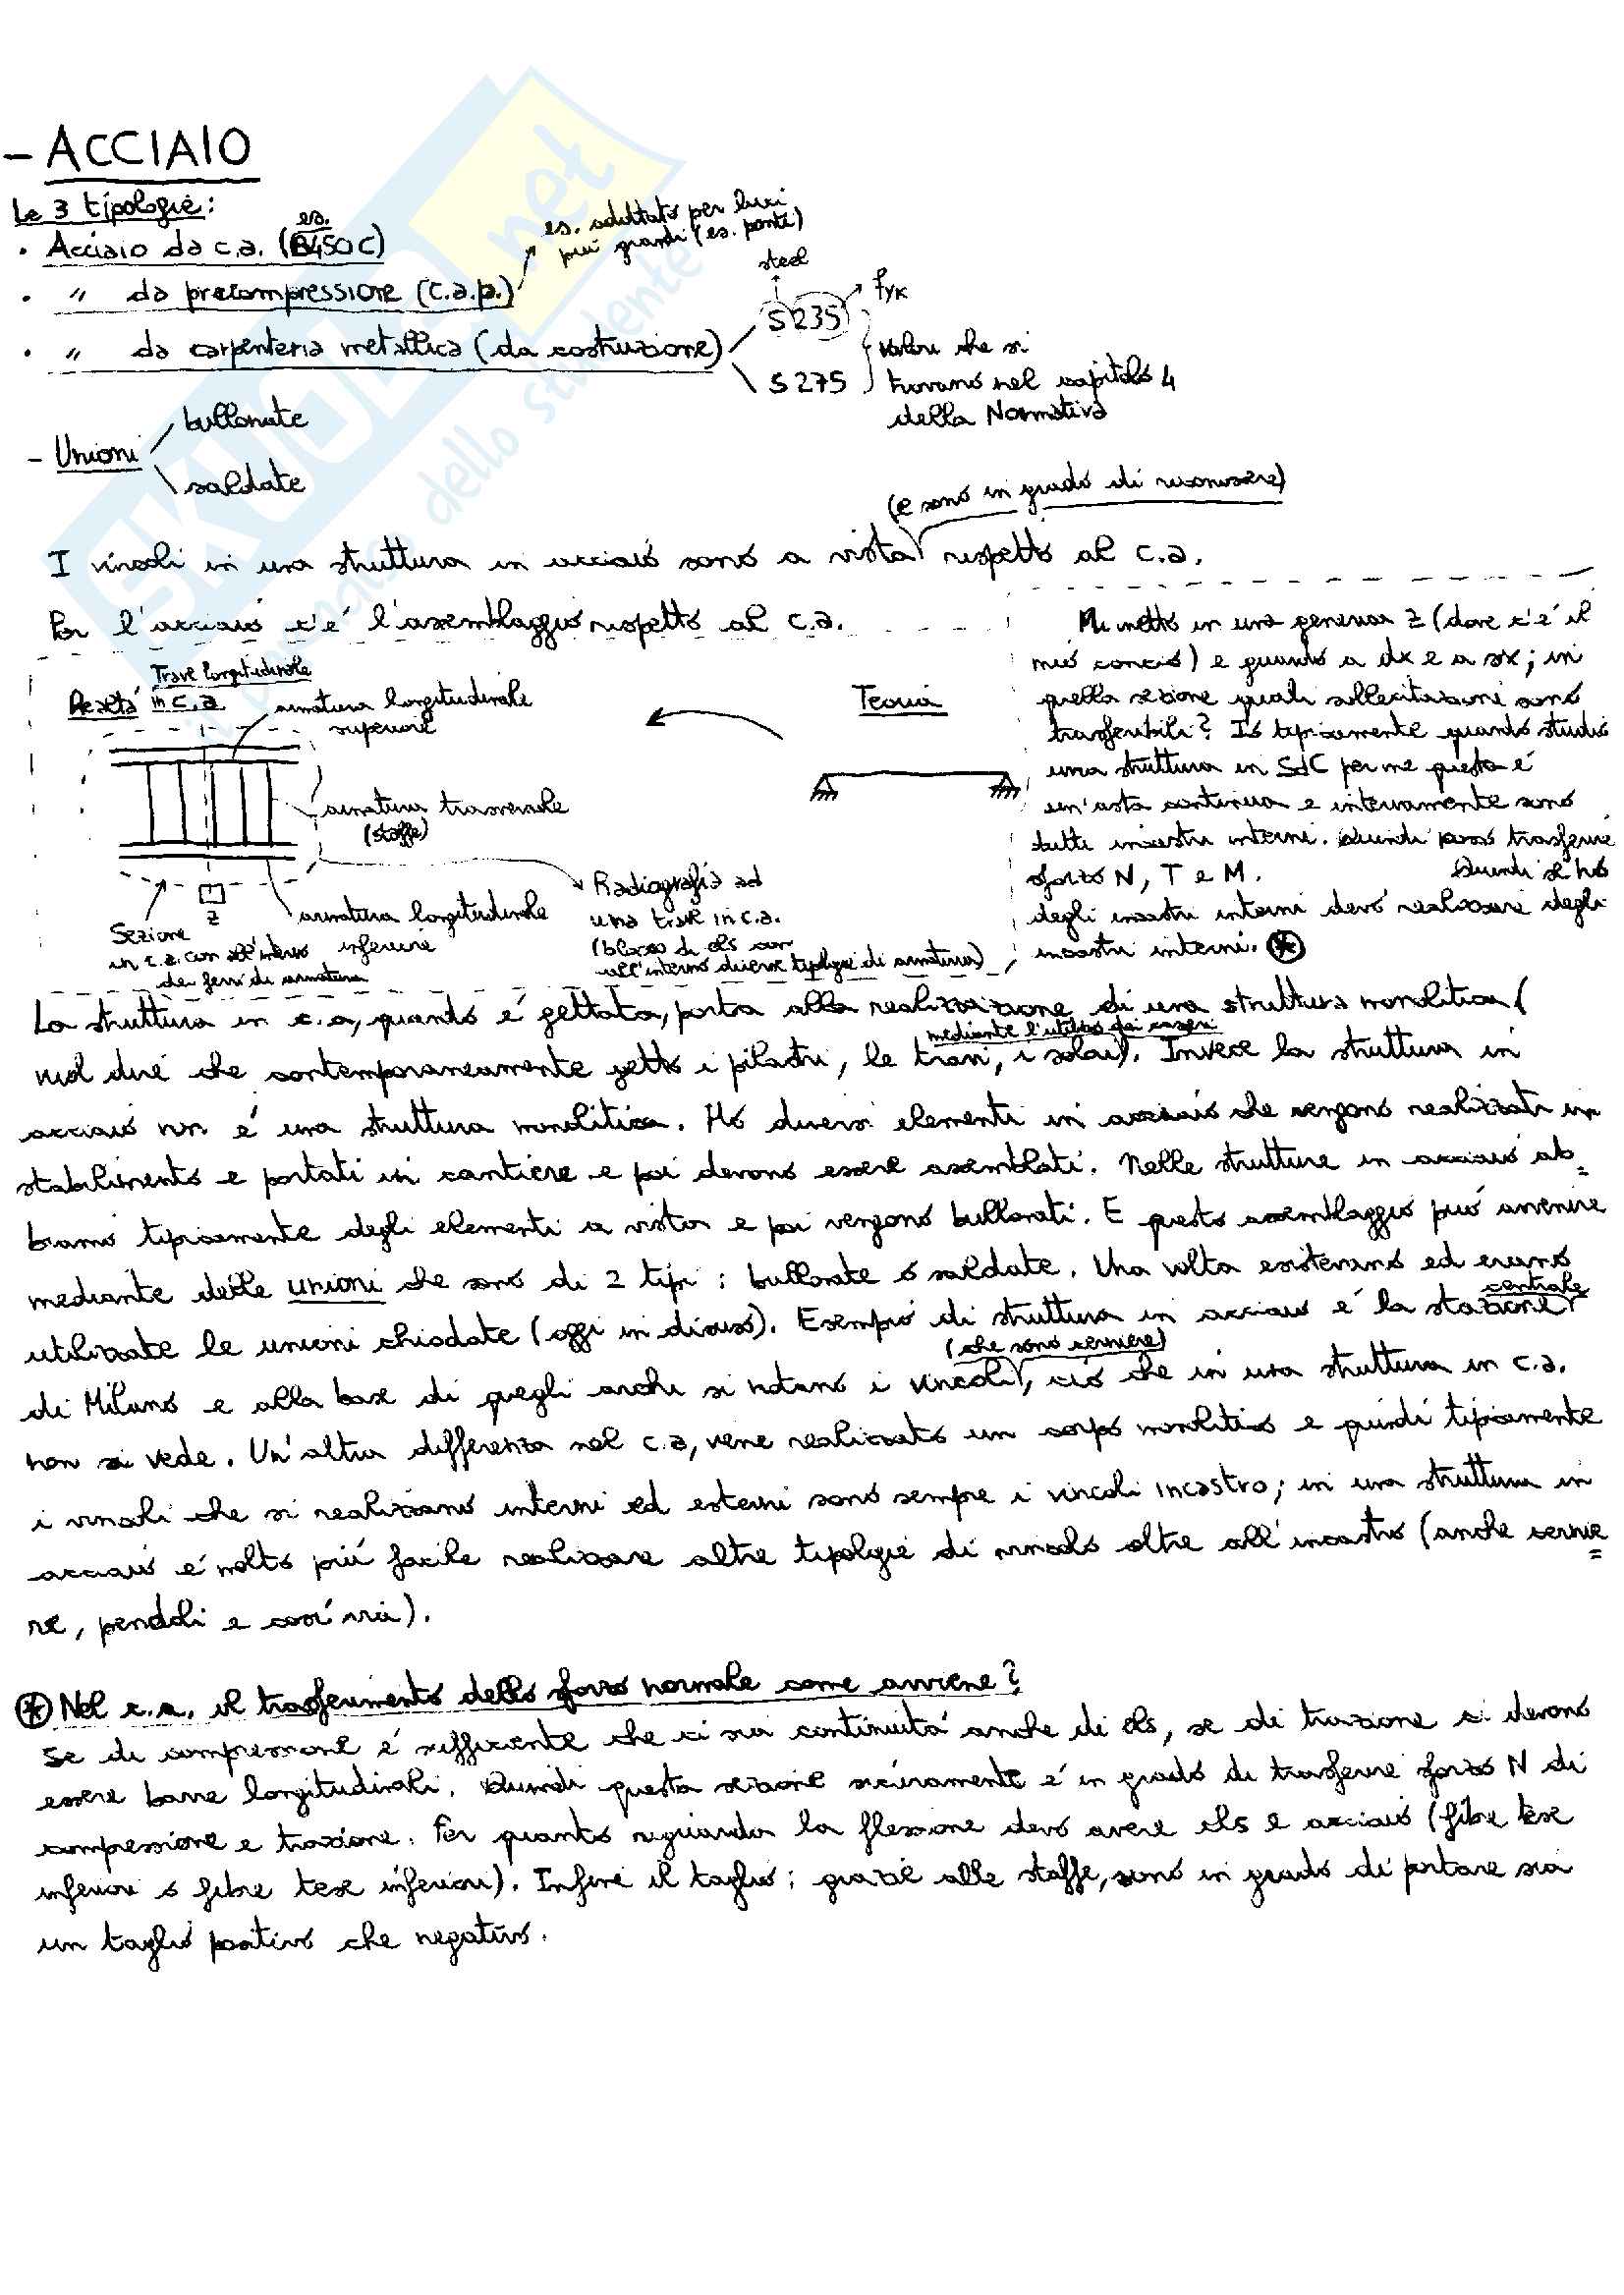 - ACCIAIO
Le 3 tipologie:
· Acciaio da c.a. (es. B450C)
· " da precompressione (c.a.p.)
es. adottato per luci
più grandi (es. ponti)
· " da carpenteria metallica (da costruzione)
steel
S 235
fyk
S 275
valori che si
trovano nel capitolo 4
della Normativa
- Unioni
bullonate
saldate
I vincoli in una struttura in acciaio sono a vista (e sono in grado di riconoscere) rispetto al c.a.
Per l'acciaio c'é l'assemblaggio rispetto al c.a.
Realtá
Trave longitudinale
in c.a
armatura longitudinale
superiore
armatura trasversale
(staffe)
armatura longitudinale
inferiore
z
Sezione
in c.a. con all'interno
dei ferri di armatura
Radiografia ad
una trave in c.a.
(blocco di cls con
all'interno diverse tipologie di armatura)
Teoria
Mi metto in una generica z (dove c'é il
mio concio) e guardo a dx e a sx; in
quella sezione quali sollecitazioni sono
trasferibili? Io tipicamente quando studio
una struttura in SdC per me questa é
un'asta continua e internamente sono
tutti incastri interni. Quindi posso trasferire
sforzo N, T e M. Quindi se ho
degli incastri interni devo realizzare degli
incastri interni. *
La struttura in c.a, quando é gettata, porta alla realizzazione di una struttura monolitica (
vuol dire che contemporaneamente getto i pilastri, le travi, i solai mediante l'utilizzo dei casseri). Invece la struttura in
acciaio non é una struttura monolitica. Ho diversi elementi in acciaio che vengono realizzati in
stabilimento e portati in cantiere e poi devono essere assemblati. Nelle strutture in acciaio ab=
biamo tipicamente degli elementi a vista e poi vengono bullonati. E questo assemblaggio può avvenire
mediante delle unioni che sono di 2 tipi: bullonate o saldate. Una volta esistevano ed erano
utilizzate le unioni chiodate (oggi in disuso). Esempio di struttura in acciaio é la stazione centrale
di Milano e alla base di quegli archi si notano i vincoli (che sono cerniere), ció che in una struttura in c.a.
non si vede. Un'altra differenza nel c.a, viene realizzato un corpo monolitico e quindi tipicamente
i vincoli che si realizzano interni ed esterni sono sempre i vincoli incastro; in una struttura in
acciaio é molto più facile realizzare altre tipologie di vincolo oltre all'incastro (anche cernie=
re, pendoli e cosí via).
* Nel c.a. il trasferimento dello sforzo normale come avviene?
Se di compressione é sufficiente che ci sia continuitá anche di cls, se di trazione ci devono
essere barre longitudinali. Quindi questa sezione sicuramente é in grado di trasferire sforzo N di
compressione e trazione. Per quanto riguarda la flessione devo avere cls e acciaio (fibre tese
inferiori o fibre tese inferiori). Infine il taglio: grazie alle staffe, sono in grado di portare sia
un taglio positivo che negativo.